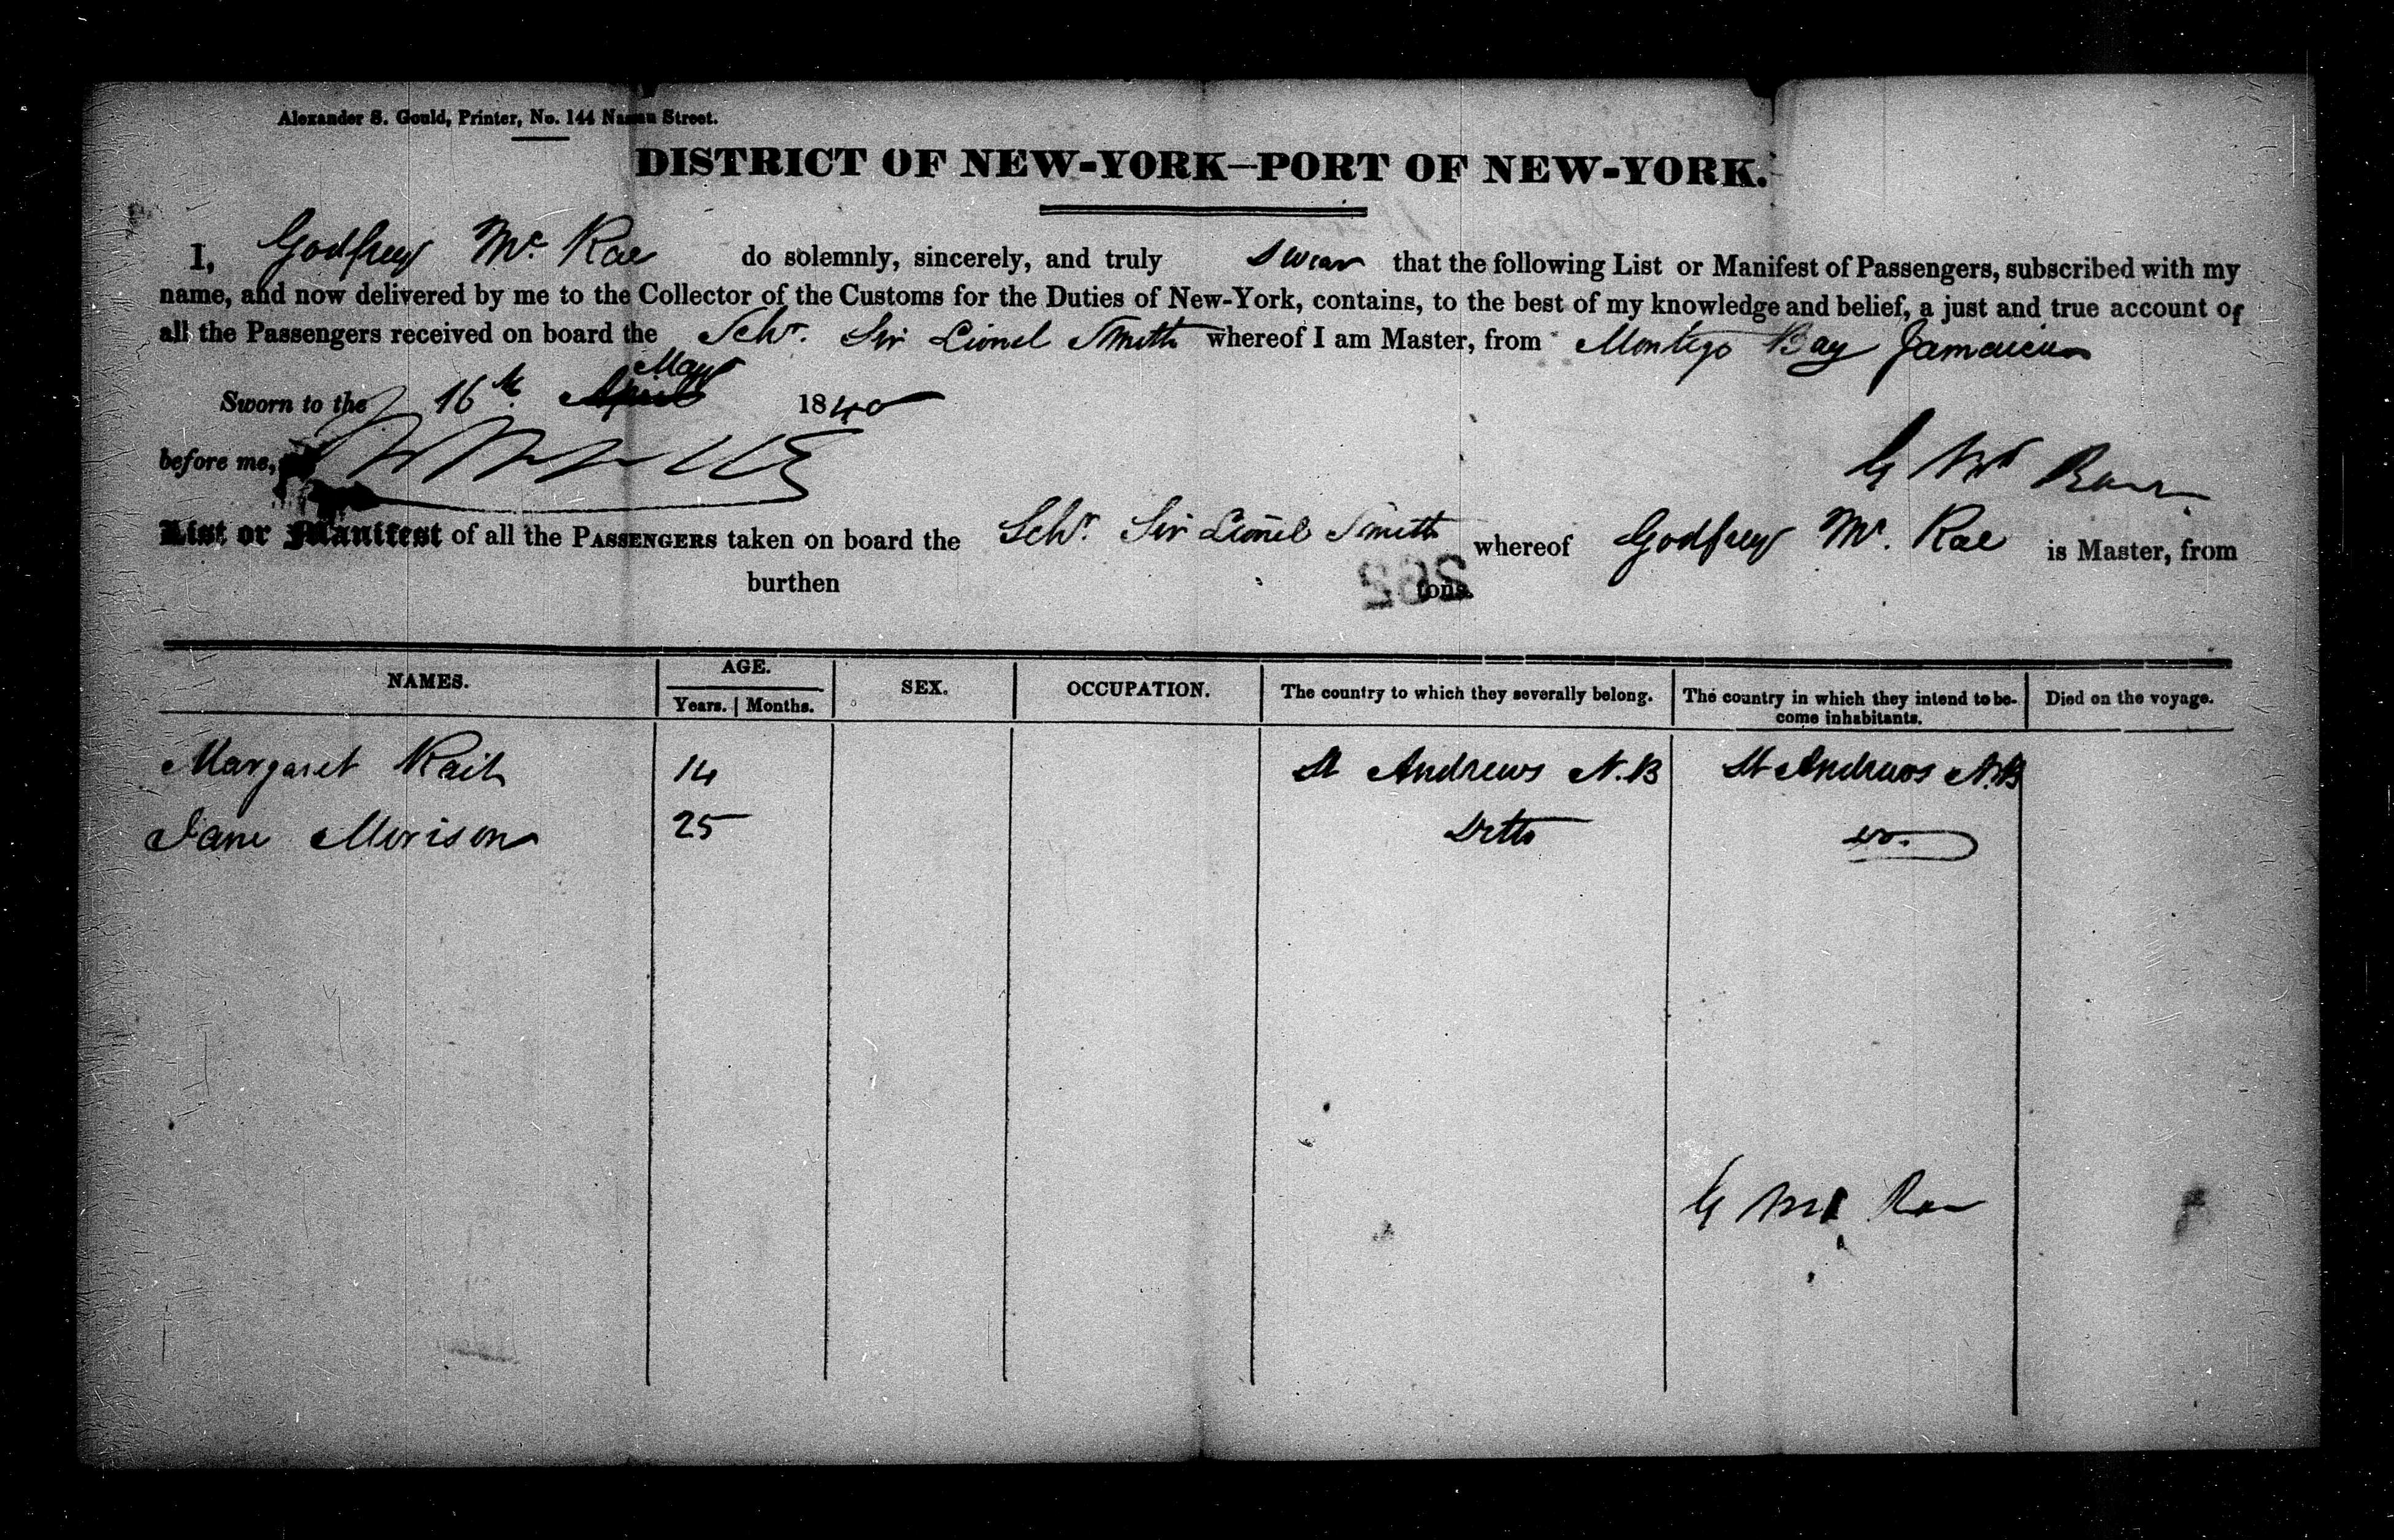 Alexander S. Gould, Printer, No. 144 Nassau Street.
DISTRICT OF NEW-YORK—PORT OF NEW-YORK.
I, Godfrey Mc. Rae do solemnly, sincerely, and truly swear that the following List or Manifest of Passengers, subscribed with my
name, and now delivered by me to the Collector of the Customs for the Duties of New-York, contains, to the best of my knowledge and belief, a just and true account of
all the Passengers received on board the Schr. Sir Lionel Smith whereof I am Master, from Montego Bay Jamaica
May
Sworn to the 16th April 1840
before me,
G Mc Rae
List or Manifest of all the PASSENGERS taken on board the Schr Sir Lionel Smith whereof Godfrey Mc. Rae is Master, from
burthen 262 tons.
NAMES. AGE. SEX. OCCUPATION. The country to which they severally belong. The country in which they intend to be- Died on the voyage.
Years. | Months. come inhabitants.
Margaret 14 St Andrews N.B St Andrews N.B
Jane Morison 25 Ditto do.
G Mc Rae